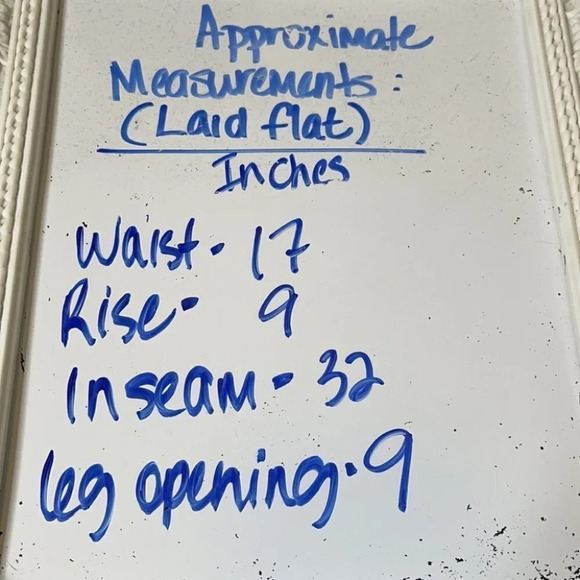 Approximate
Measurements:
(Laid flat)
Inches
Waist - 17
Rise - 9
Inseam - 32
leg opening - 9